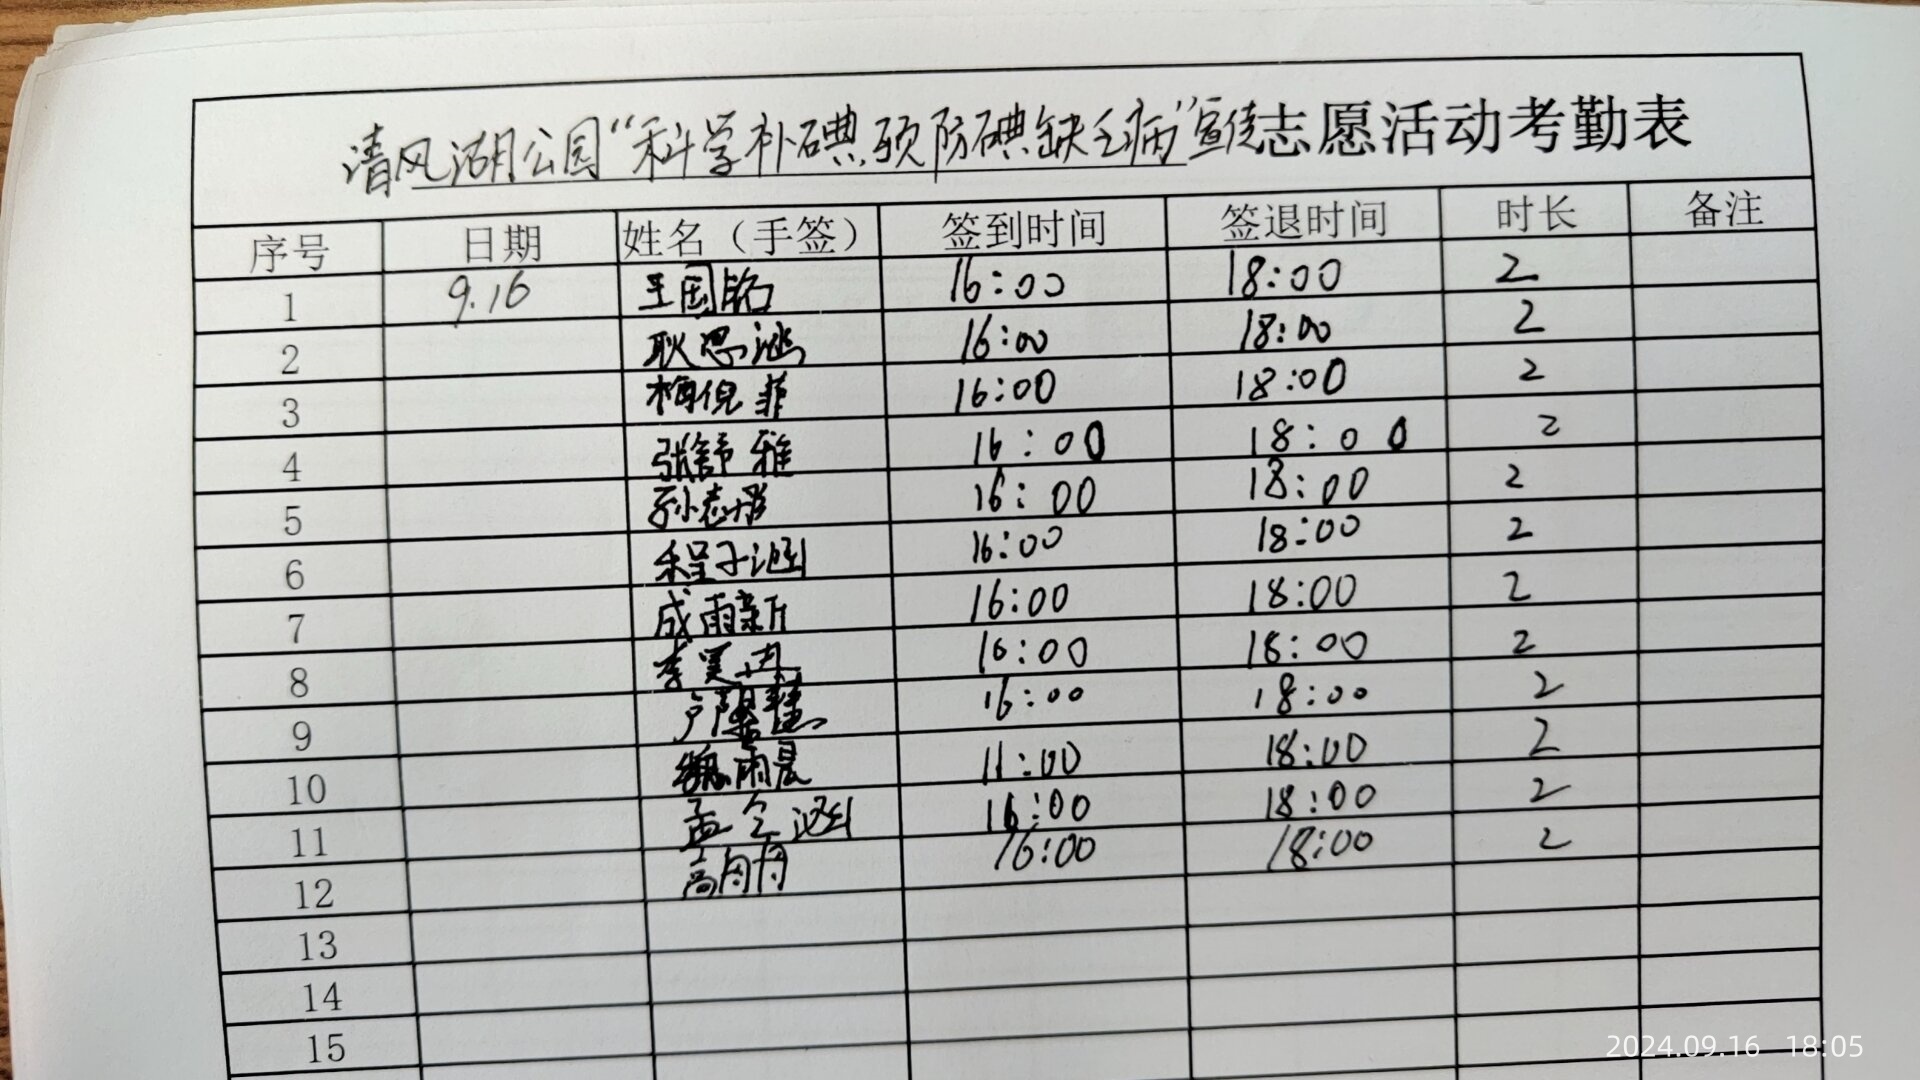 清风湖公园“科学补碘预防碘缺乏病”宣传志愿活动考勤表
序号 日期 姓名（手签） 签到时间 签退时间 时长 备注
1 9.16 王国铭 16:00 18:00 2
2 耿思涵 16:00 18:00 2
3 梅倪菲 16:00 18:00 2
4 张舒雅 16:00 18:00 2
5 孙志彤 16:00 18:00 2
6 程子涵 16:00 18:00 2
7 成雨新 16:00 18:00 2
8 李 16:00 18:00 2
9 卢 16:00 18:00 2
10 魏雨晨 11:00 18:00 2
11 孟令涵 16:00 18:00 2
12 高 16:00 18:00 2
13
14
15
2024.09.16 18:05